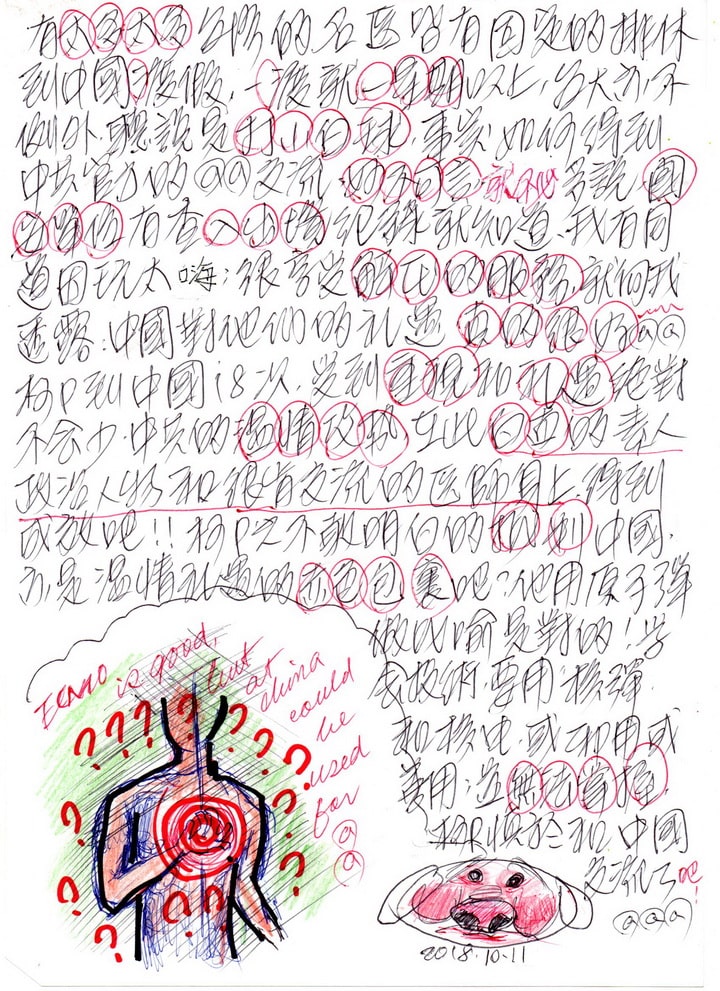 有太多太多台灣的名醫皆有固定的排休
到中國ㄋ渡假,一渡就一星期以上,台大亦不
例外,聽說是打小白球,事實如何得到
中共官方的@@交流,妙不可言就不必多說,國
安單位有查入出境紀錄就知道,我有同
道因玩太嗨;很享受解壓的服務,就向我
透露:中國對他們的禮遇真的很好@@
柯P到中國18次,受到重視和禮遇絕對
不會少,中共的溫情攻勢在此白色的素人
政治人物和很肯交流的醫師身上,得到
成效吧!!柯P先不敢明白的中國,
亦是溫情禮遇的包裹吧?他用原子彈
做比喻是對的!學
技術,要用核彈
和核電,或和用或
善用;並無法掌握,
柯P慎於和中國
交流了吧!
ECMO is good,
but at
china
could
be
used
for
@
@
@@@
2018.10.11